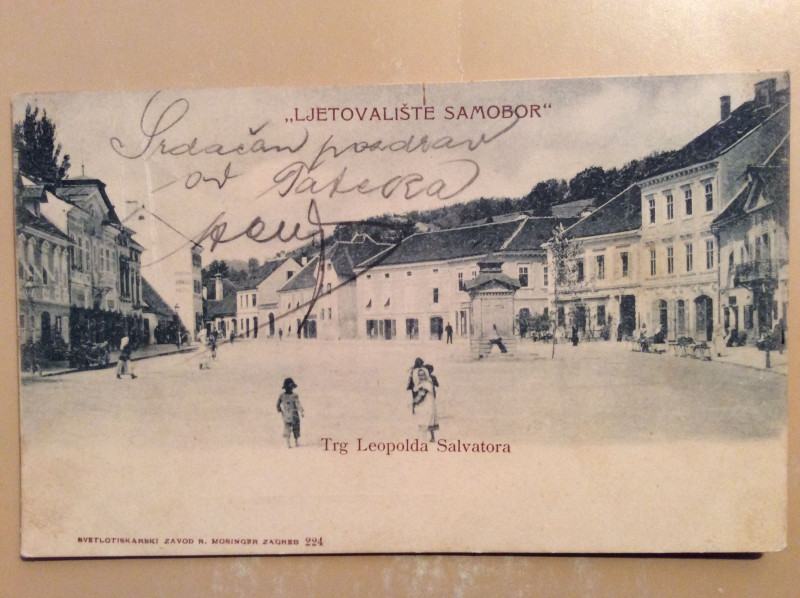 „LJETOVALIŠTE SAMOBOR“
Srdačan pozdrav
od Tateka
Trg Leopolda Salvatora
SVETLOTISKARSKI ZAVOD R. MOSINGER ZAGREB 224